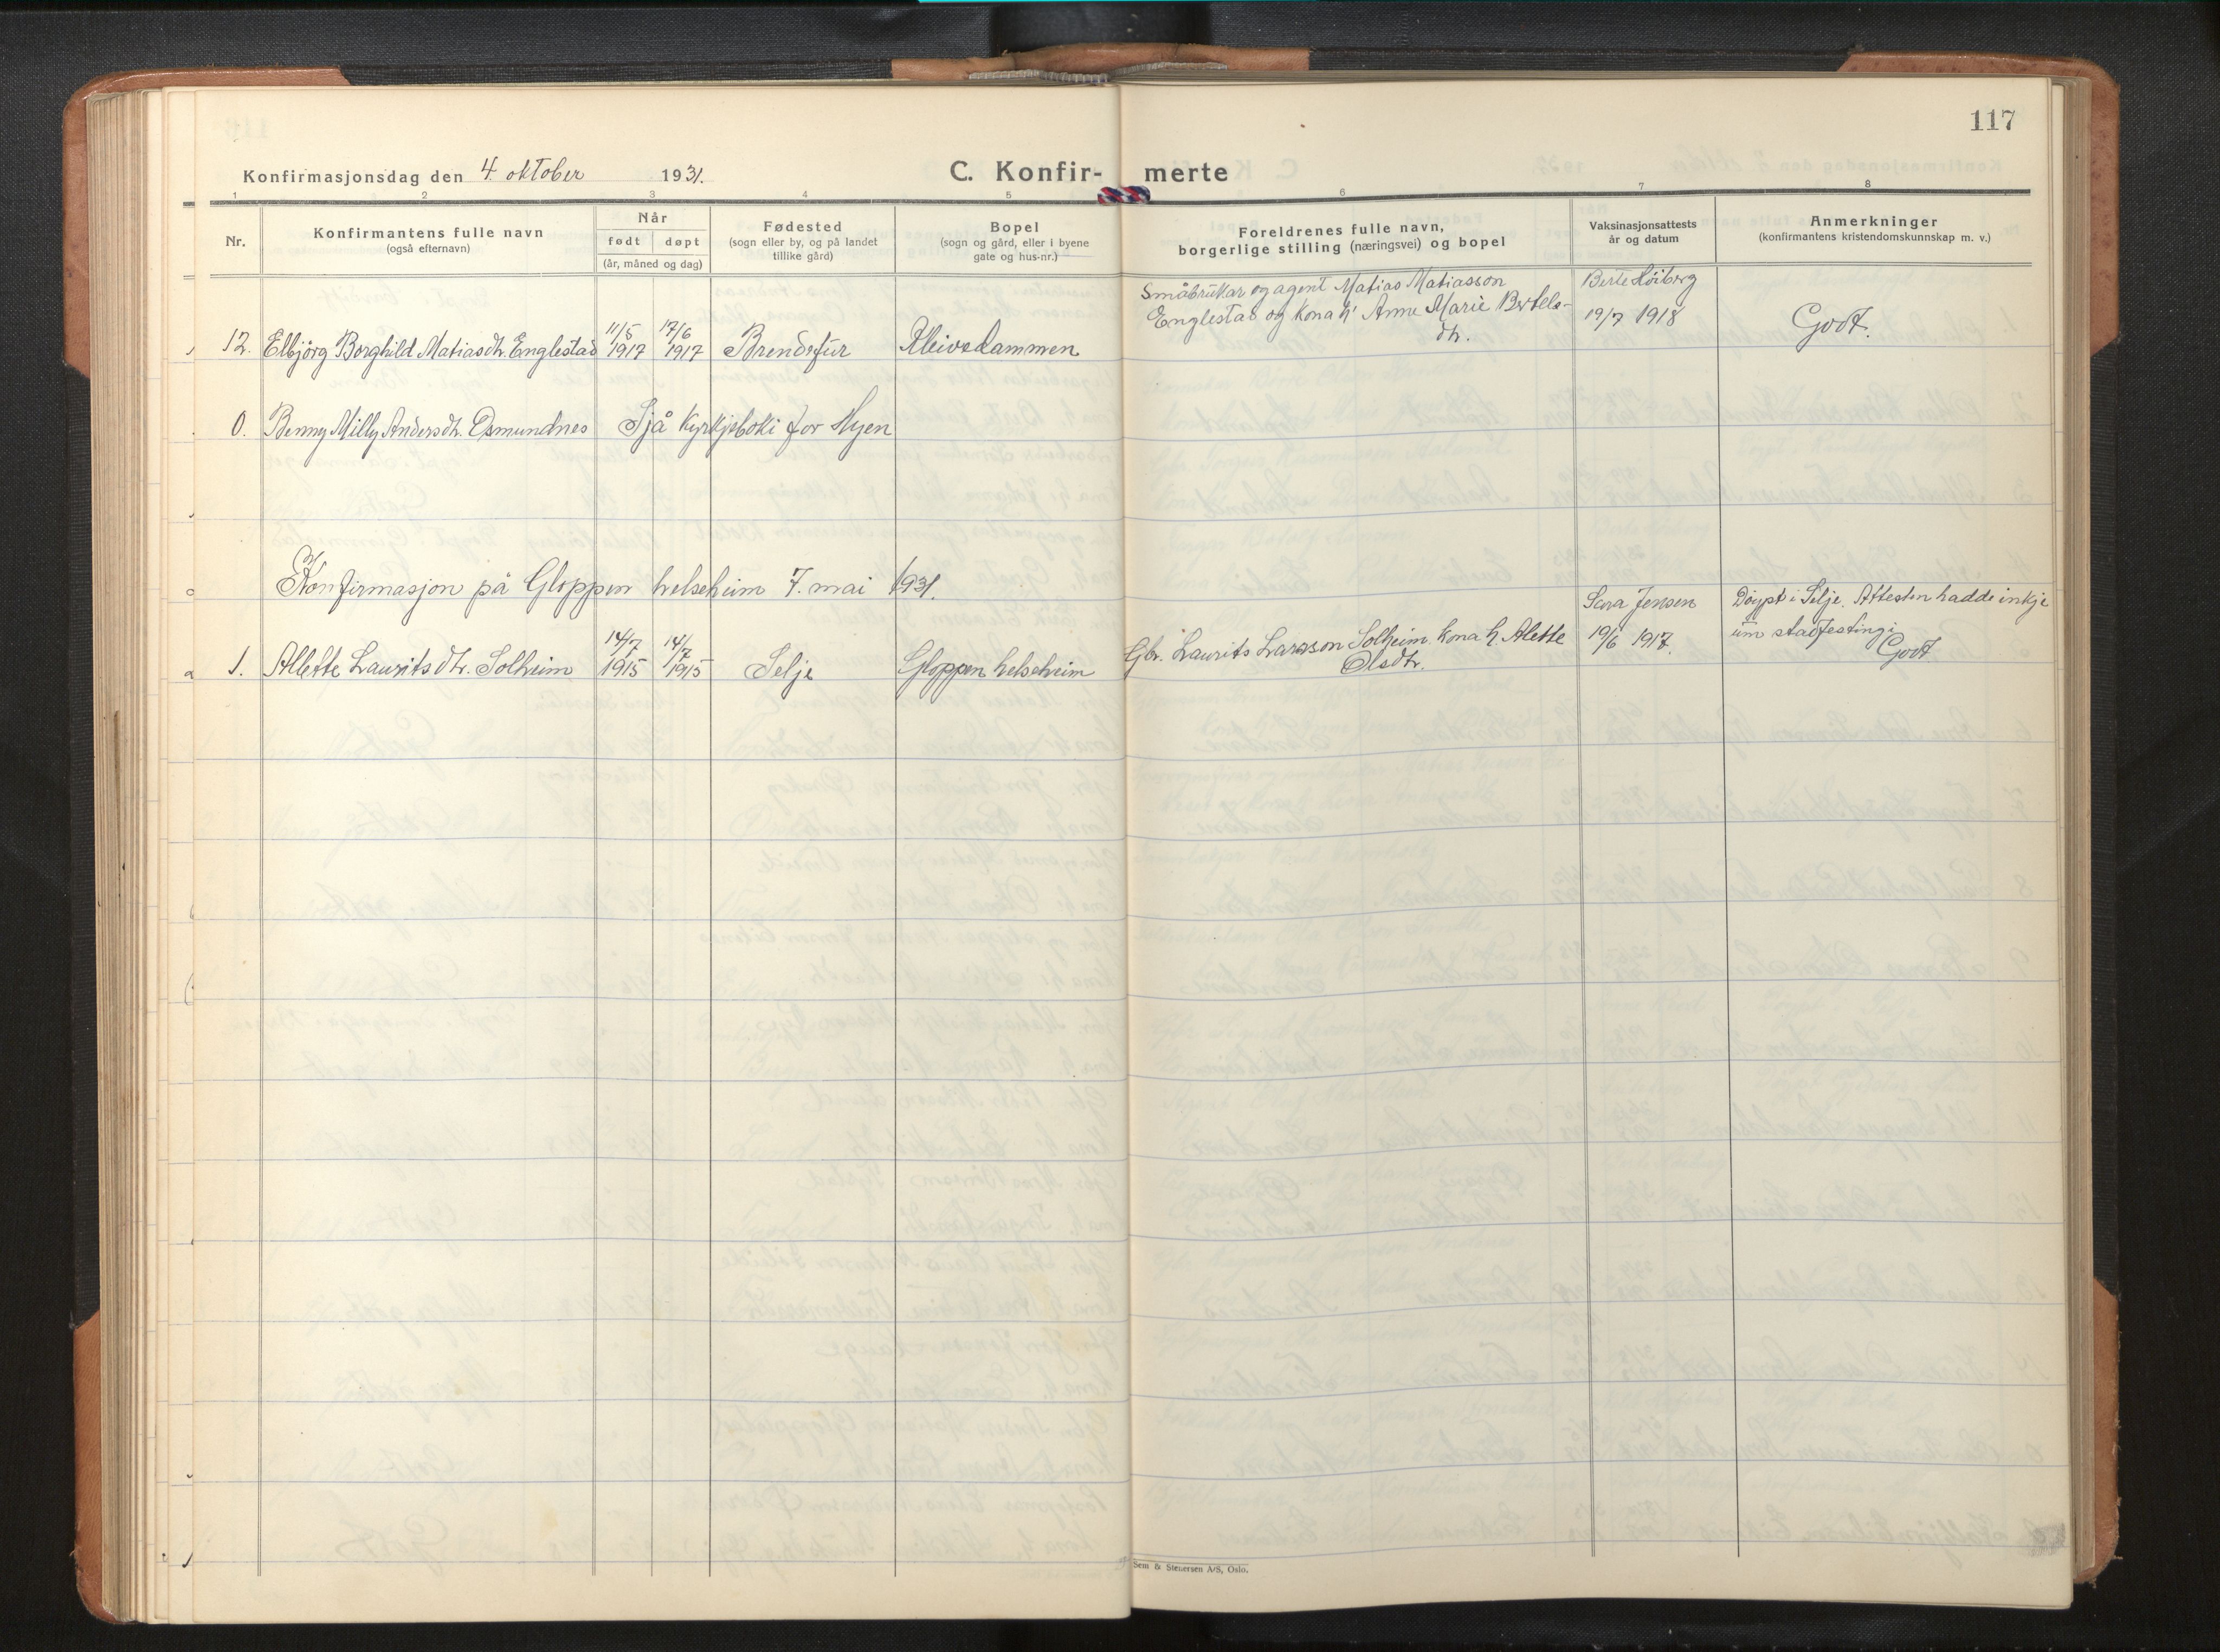 117
Konfirmasjonsdag den 4. oktober 1931.
C. Konfir- merte
1 2 3 4 5 6 7 8
Nr.
Konfirmantens fulle navn
(også efternavn)
Når
født døpt
(år, måned og dag)
Fødested
(sogn eller by, og på landet
tillike gård)
Bopel
(sogn og gård, eller i byene
gate og hus-nr.)
Foreldrenes fulle navn,
borgerlige stilling (næringsvei) og bopel
Vaksinasjonsattests
år og datum
Anmerkninger
(konfirmantens kristendomskunnskap m. v.)
12. Elbjörg Borghild Matiasdtr. Englestad 11/5 1917 17/6 1917 Brendefur Kleivdammen
Småbrukar og agent Matias Matiasson
Englestad og kona h' Anne Marie Bertels-
dtr.
Berte Höiberg
19/7 1918
Godt.
0. Benny Milly Andersdtr. Osmundnes Sjå Kyrkjeboki for Hyen
Konfirmasjon på Gloppen helseheim 7. mai 1931.
1. Allette Lauritsdtr. Solheim 14/7 1915 14/7 1915 Selje Gloppen helseheim
Gbr. Laurits Larsson Solheim. kona h. Alette
Olsdtr.
Sara Jensen
19/6 1917.
Döypt i Selje. Attesten hadde inkje
um stadfesting.
Godt
Sem & Stenersen A/S, Oslo.